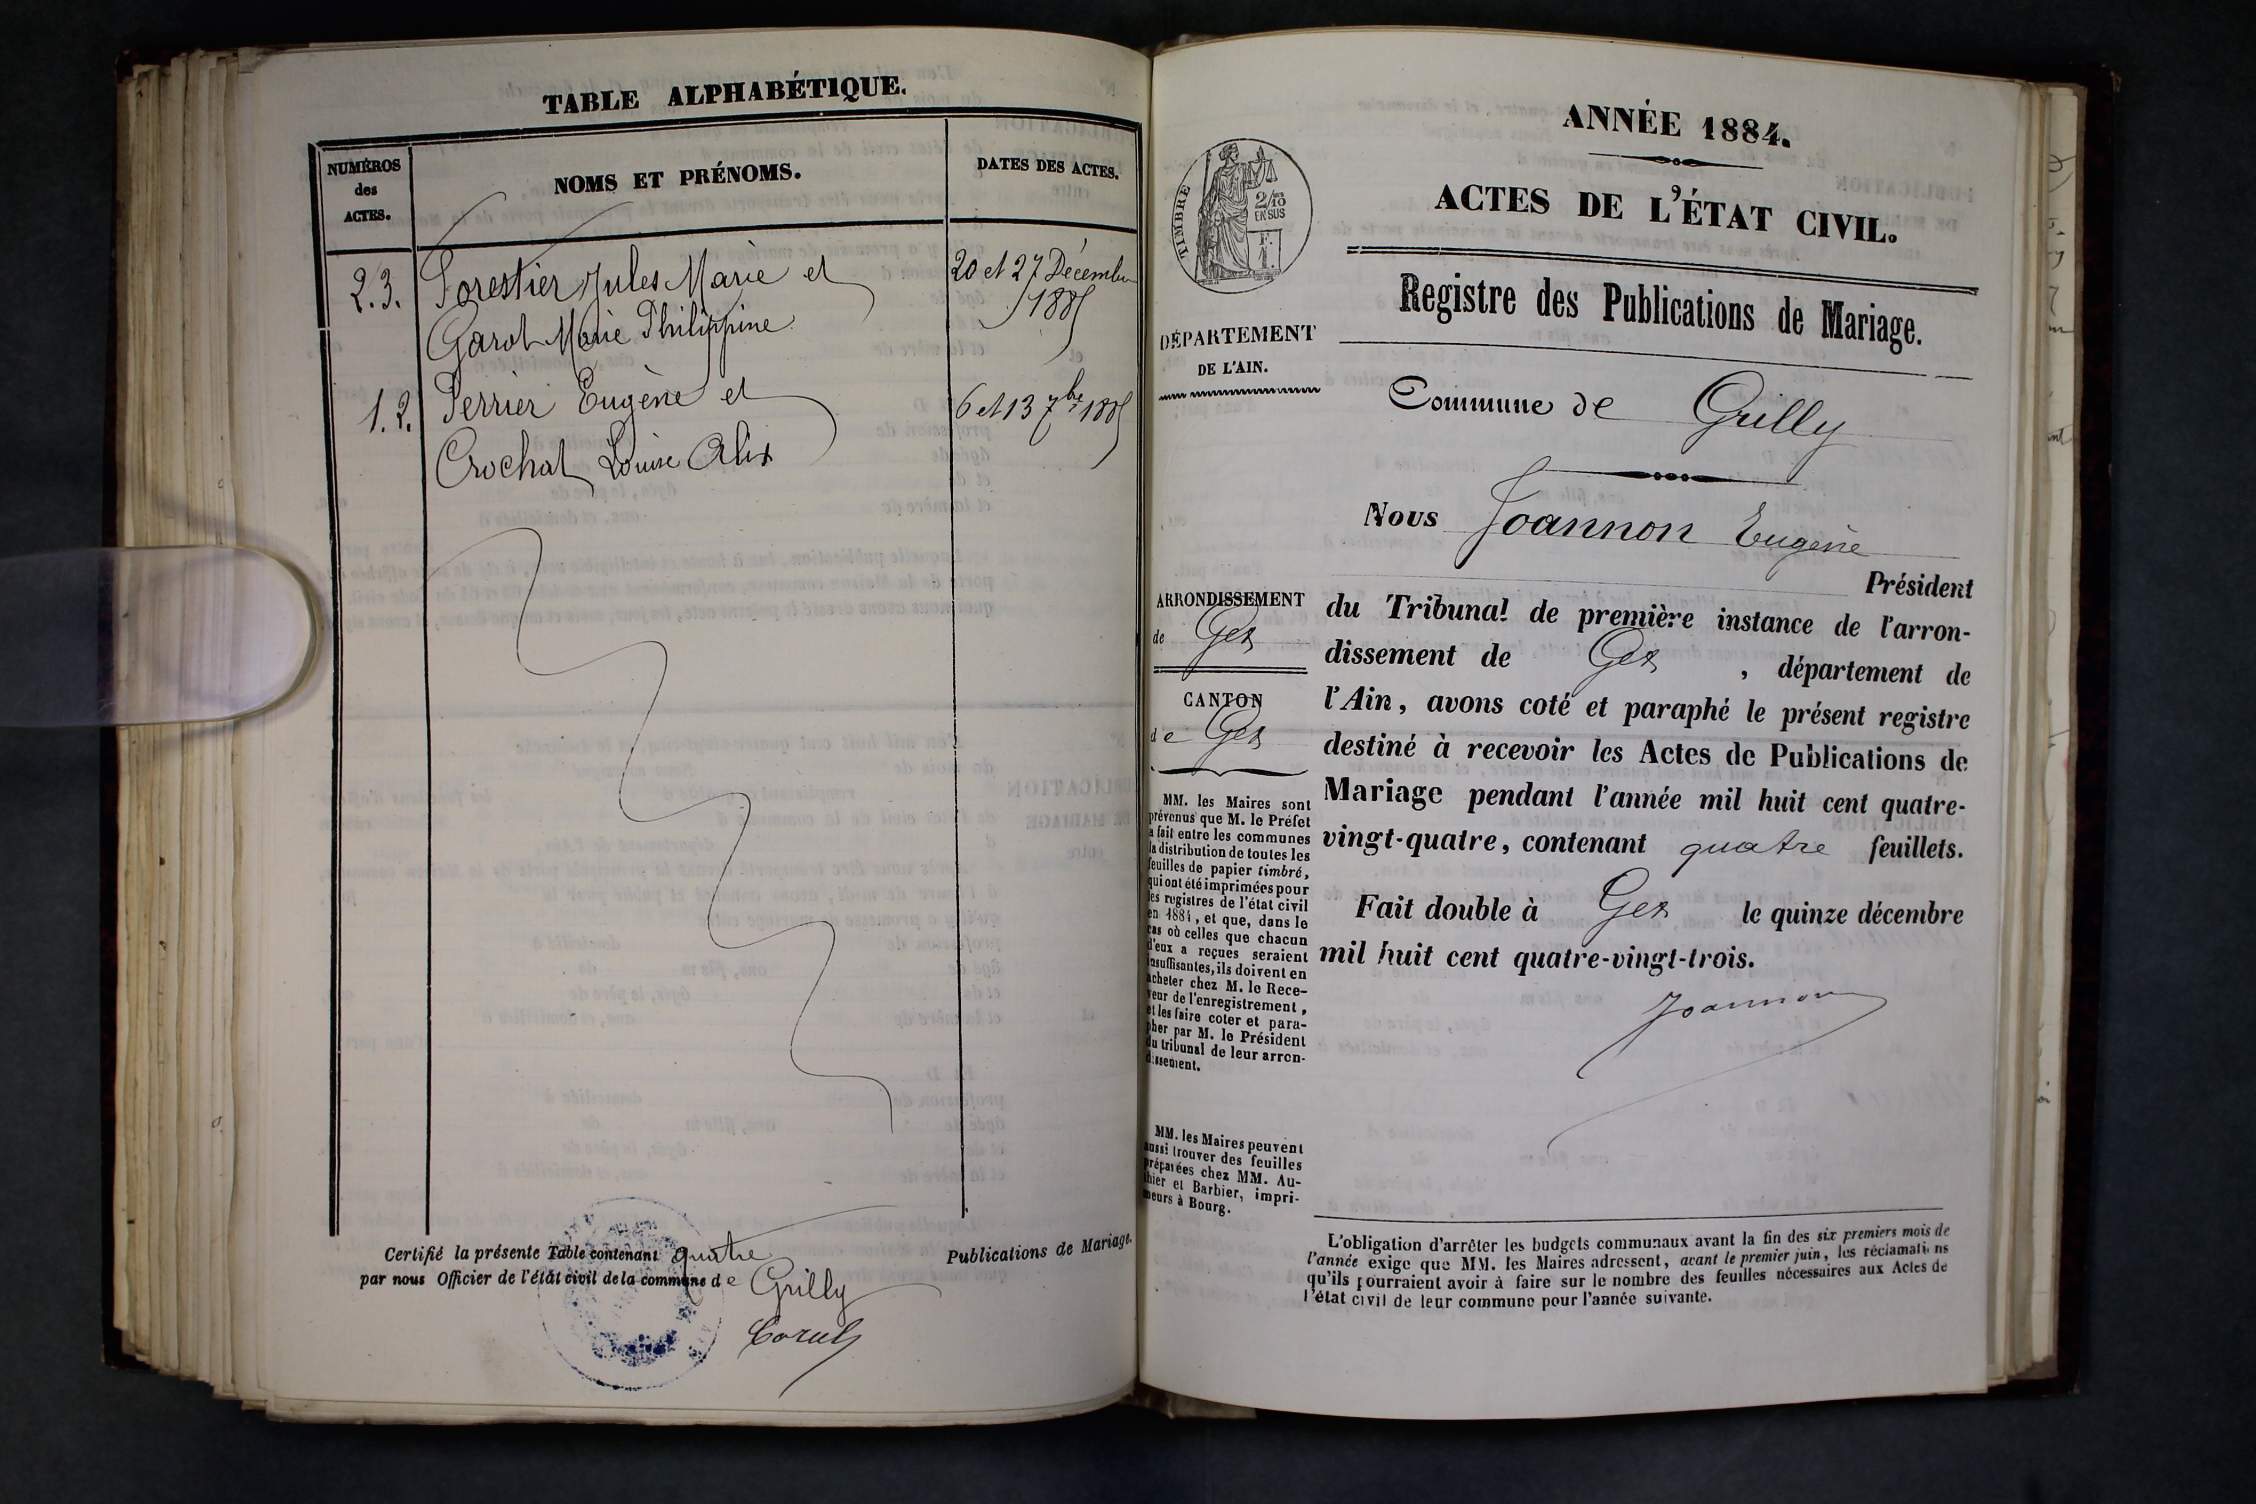 TABLE ALPHABÉTIQUE.
NUMÉROS
des
ACTES.
NOMS ET PRÉNOMS.
DATES DES ACTES.
2.3. Forestier Jules Marie et 20 et 27 Décembre
Garot Marie Philippine 1885
1.2. Perrier Eugène et 6 et 13 7bre 1885
Crochat Louise Alix
Certifié la présente Table contenant quatre Publications de Mariage.
par nous Officier de l'état civil de la commune de Grilly
ANNÉE 1884.
ACTES DE L'ÉTAT CIVIL.
TIMBRE
2/10
EN SUS
F.
1.
Registre des Publications de Mariage.
DÉPARTEMENT
DE L'AIN.
Commune de Grilly
Nous Joannon Eugène
Président
ARRONDISSEMENT
de Gex
CANTON
de Gex
du Tribunal de première instance de l'arron-
dissement de Gex, département de
l'Ain, avons coté et paraphé le présent registre
destiné à recevoir les Actes de Publications de
Mariage pendant l'année mil huit cent quatre-
vingt-quatre, contenant quatre feuillets.
Fait double à Gex le quinze décembre
mil huit cent quatre-vingt-trois.
Joannon
MM. les Maires sont
prévenus que M. le Préfet
a fait entre les communes
la distribution de toutes les
feuilles de papier timbré,
qui ont été imprimées pour
les registres de l'état civil
en 1884, et que, dans le
cas où celles que chacun
d'eux a reçues seraient
insuffisantes, ils doivent en
acheter chez M. le Rece-
veur de l'enregistrement,
et les faire coter et para-
pher par M. le Président
du tribunal de leur arron-
dissement.
MM. les Maires peuvent
aussi trouver des feuilles
préparées chez MM. Au-
thier et Barbier, impri-
meurs à Bourg.
L'obligation d'arrêter les budgets communaux avant la fin des six premiers mois de
l'année exige que MM. les Maires adressent, avant le premier juin, les réclamations
qu'ils pourraient avoir à faire sur le nombre des feuilles nécessaires aux Actes de
l'état civil de leur commune pour l'année suivante.